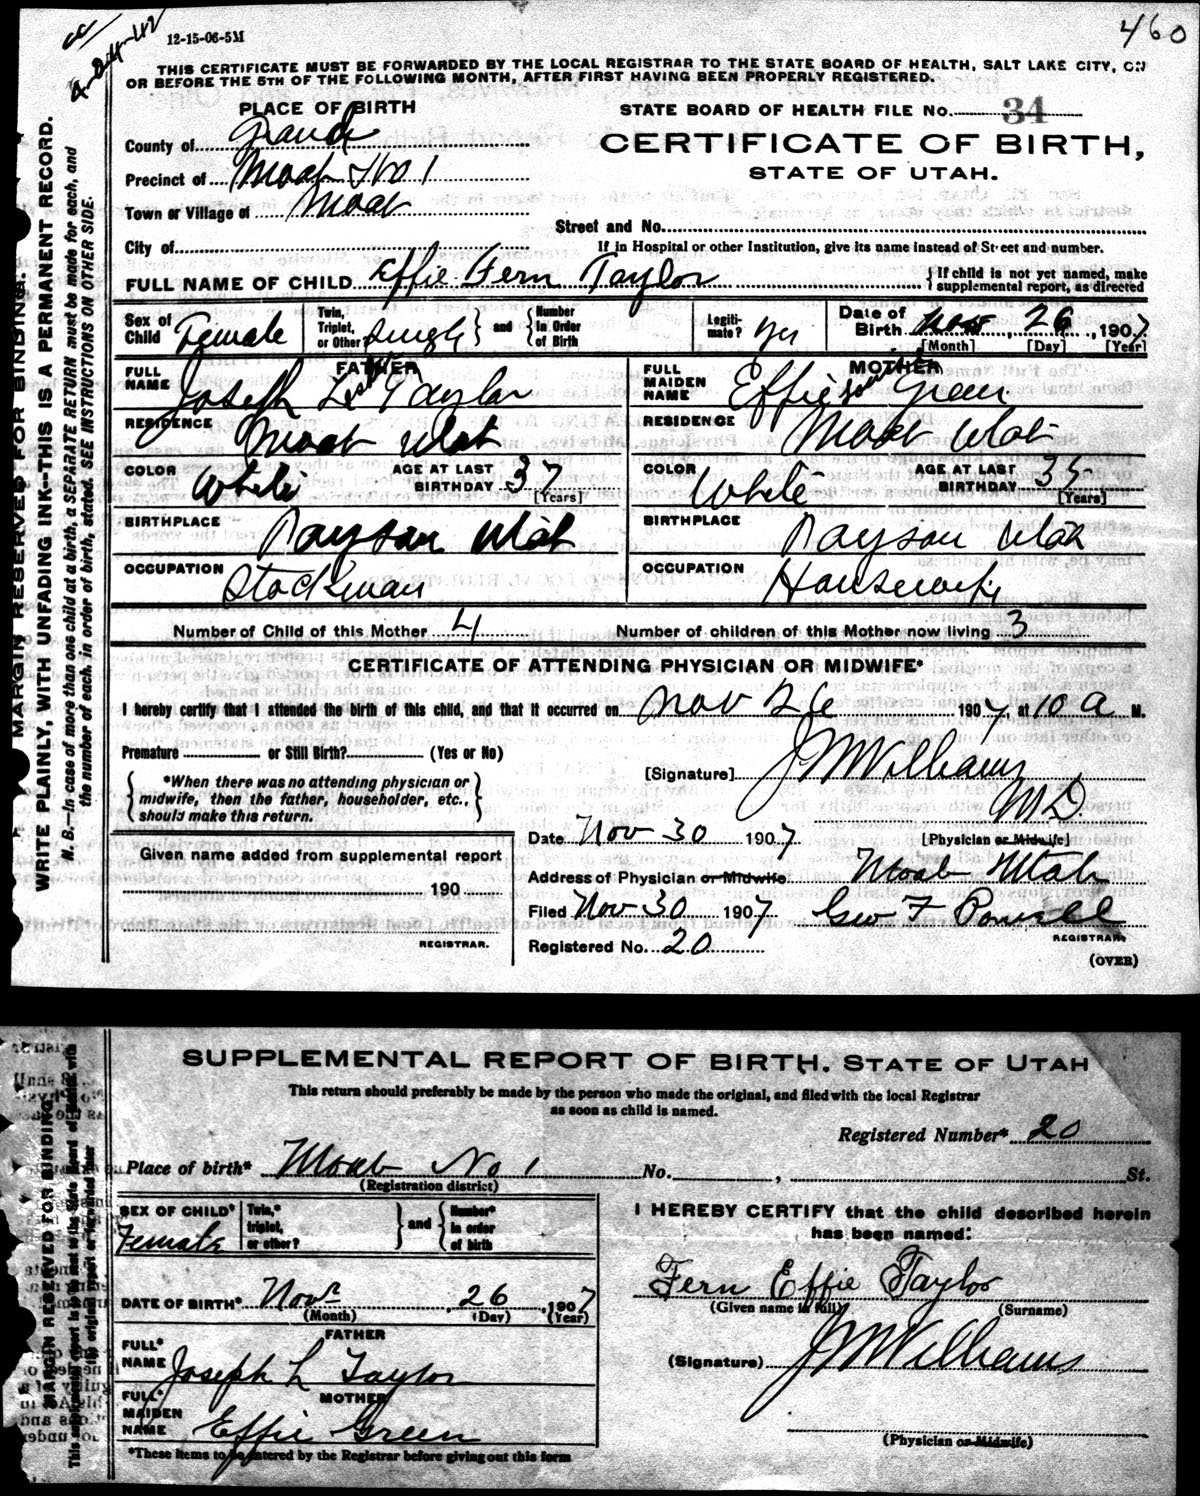 460
12-15-06-5M
THIS CERTIFICATE MUST BE FORWARDED BY THE LOCAL REGISTRAR TO THE STATE BOARD OF HEALTH, SALT LAKE CITY, ON
OR BEFORE THE 5TH OF THE FOLLOWING MONTH, AFTER FIRST HAVING BEEN PROPERLY REGISTERED.
MARGIN RESERVED FOR BINDING.
WRITE PLAINLY, WITH UNFADING INK--THIS IS A PERMANENT RECORD.
N. B.—In case of more than one child at a birth, a SEPARATE RETURN must be made for each, and
the number of each, in order of birth, stated. SEE INSTRUCTIONS ON OTHER SIDE.
PLACE OF BIRTH
STATE BOARD OF HEALTH FILE No. 34
County of Grand
CERTIFICATE OF BIRTH,
Precinct of Moab No 1
STATE OF UTAH.
Town or Village of Moab
Street and No.
City of
If in Hospital or other Institution, give its name instead of Street and number.
FULL NAME OF CHILD Effie Fern Taylor
If child is not yet named, make
supplemental report, as directed
Sex of Child Female
Twin, Triplet, or Other? Single and Number In Order of Birth
Legitimate? Yes
Date of Birth Nov 26, 1907
[Month] [Day] [Year]
FATHER
MOTHER
FULL NAME Joseph Taylor
FULL MAIDEN NAME Effie Green
RESIDENCE Moab Utah
RESIDENCE Moab Utah
COLOR White AGE AT LAST BIRTHDAY 37 [Years]
COLOR White AGE AT LAST BIRTHDAY 35 [Years]
BIRTHPLACE Payson Utah
BIRTHPLACE Payson Utah
OCCUPATION Stockman
OCCUPATION Housewife
Number of Child of this Mother 4 Number of children of this Mother now living 3
CERTIFICATE OF ATTENDING PHYSICIAN OR MIDWIFE*
I hereby certify that I attended the birth of this child, and that it occurred on Nov 26 1907, at 10 a M.
Premature or Still Birth? (Yes or No)
[Signature] J M Williams
M.D.
*When there was no attending physician or
midwife, then the father, householder, etc.,
should make this return.
Date Nov 30 1907
[Physician or Midwife]
Given name added from supplemental report
190
REGISTRAR.
Address of Physician or Midwife Moab Utah
Filed Nov 30 1907 Geo F Powell
REGISTRAR.
Registered No. 20
(OVER)
SUPPLEMENTAL REPORT OF BIRTH. STATE OF UTAH
This return should preferably be made by the person who made the original, and filed with the local Registrar
as soon as child is named.
MARGIN RESERVED FOR BINDING
Registered Number* 20
Place of birth* Moab No 1 No. , St.
(Registration district)
SEX OF CHILD* Female
Twin,* triplet, or other? and Number* in order of birth
I HEREBY CERTIFY that the child described herein
has been named:
Fern Effie Taylor
(Given name in full) (Surname)
DATE OF BIRTH* Novr 26, 1907
(Month) (Day) (Year)
FATHER
FULL* NAME Joseph L Taylor
(Signature) J M Williams
MOTHER
FULL* MAIDEN NAME Effie Green
(Physician or Midwife)
*These items to be entered by the Registrar before giving out this form